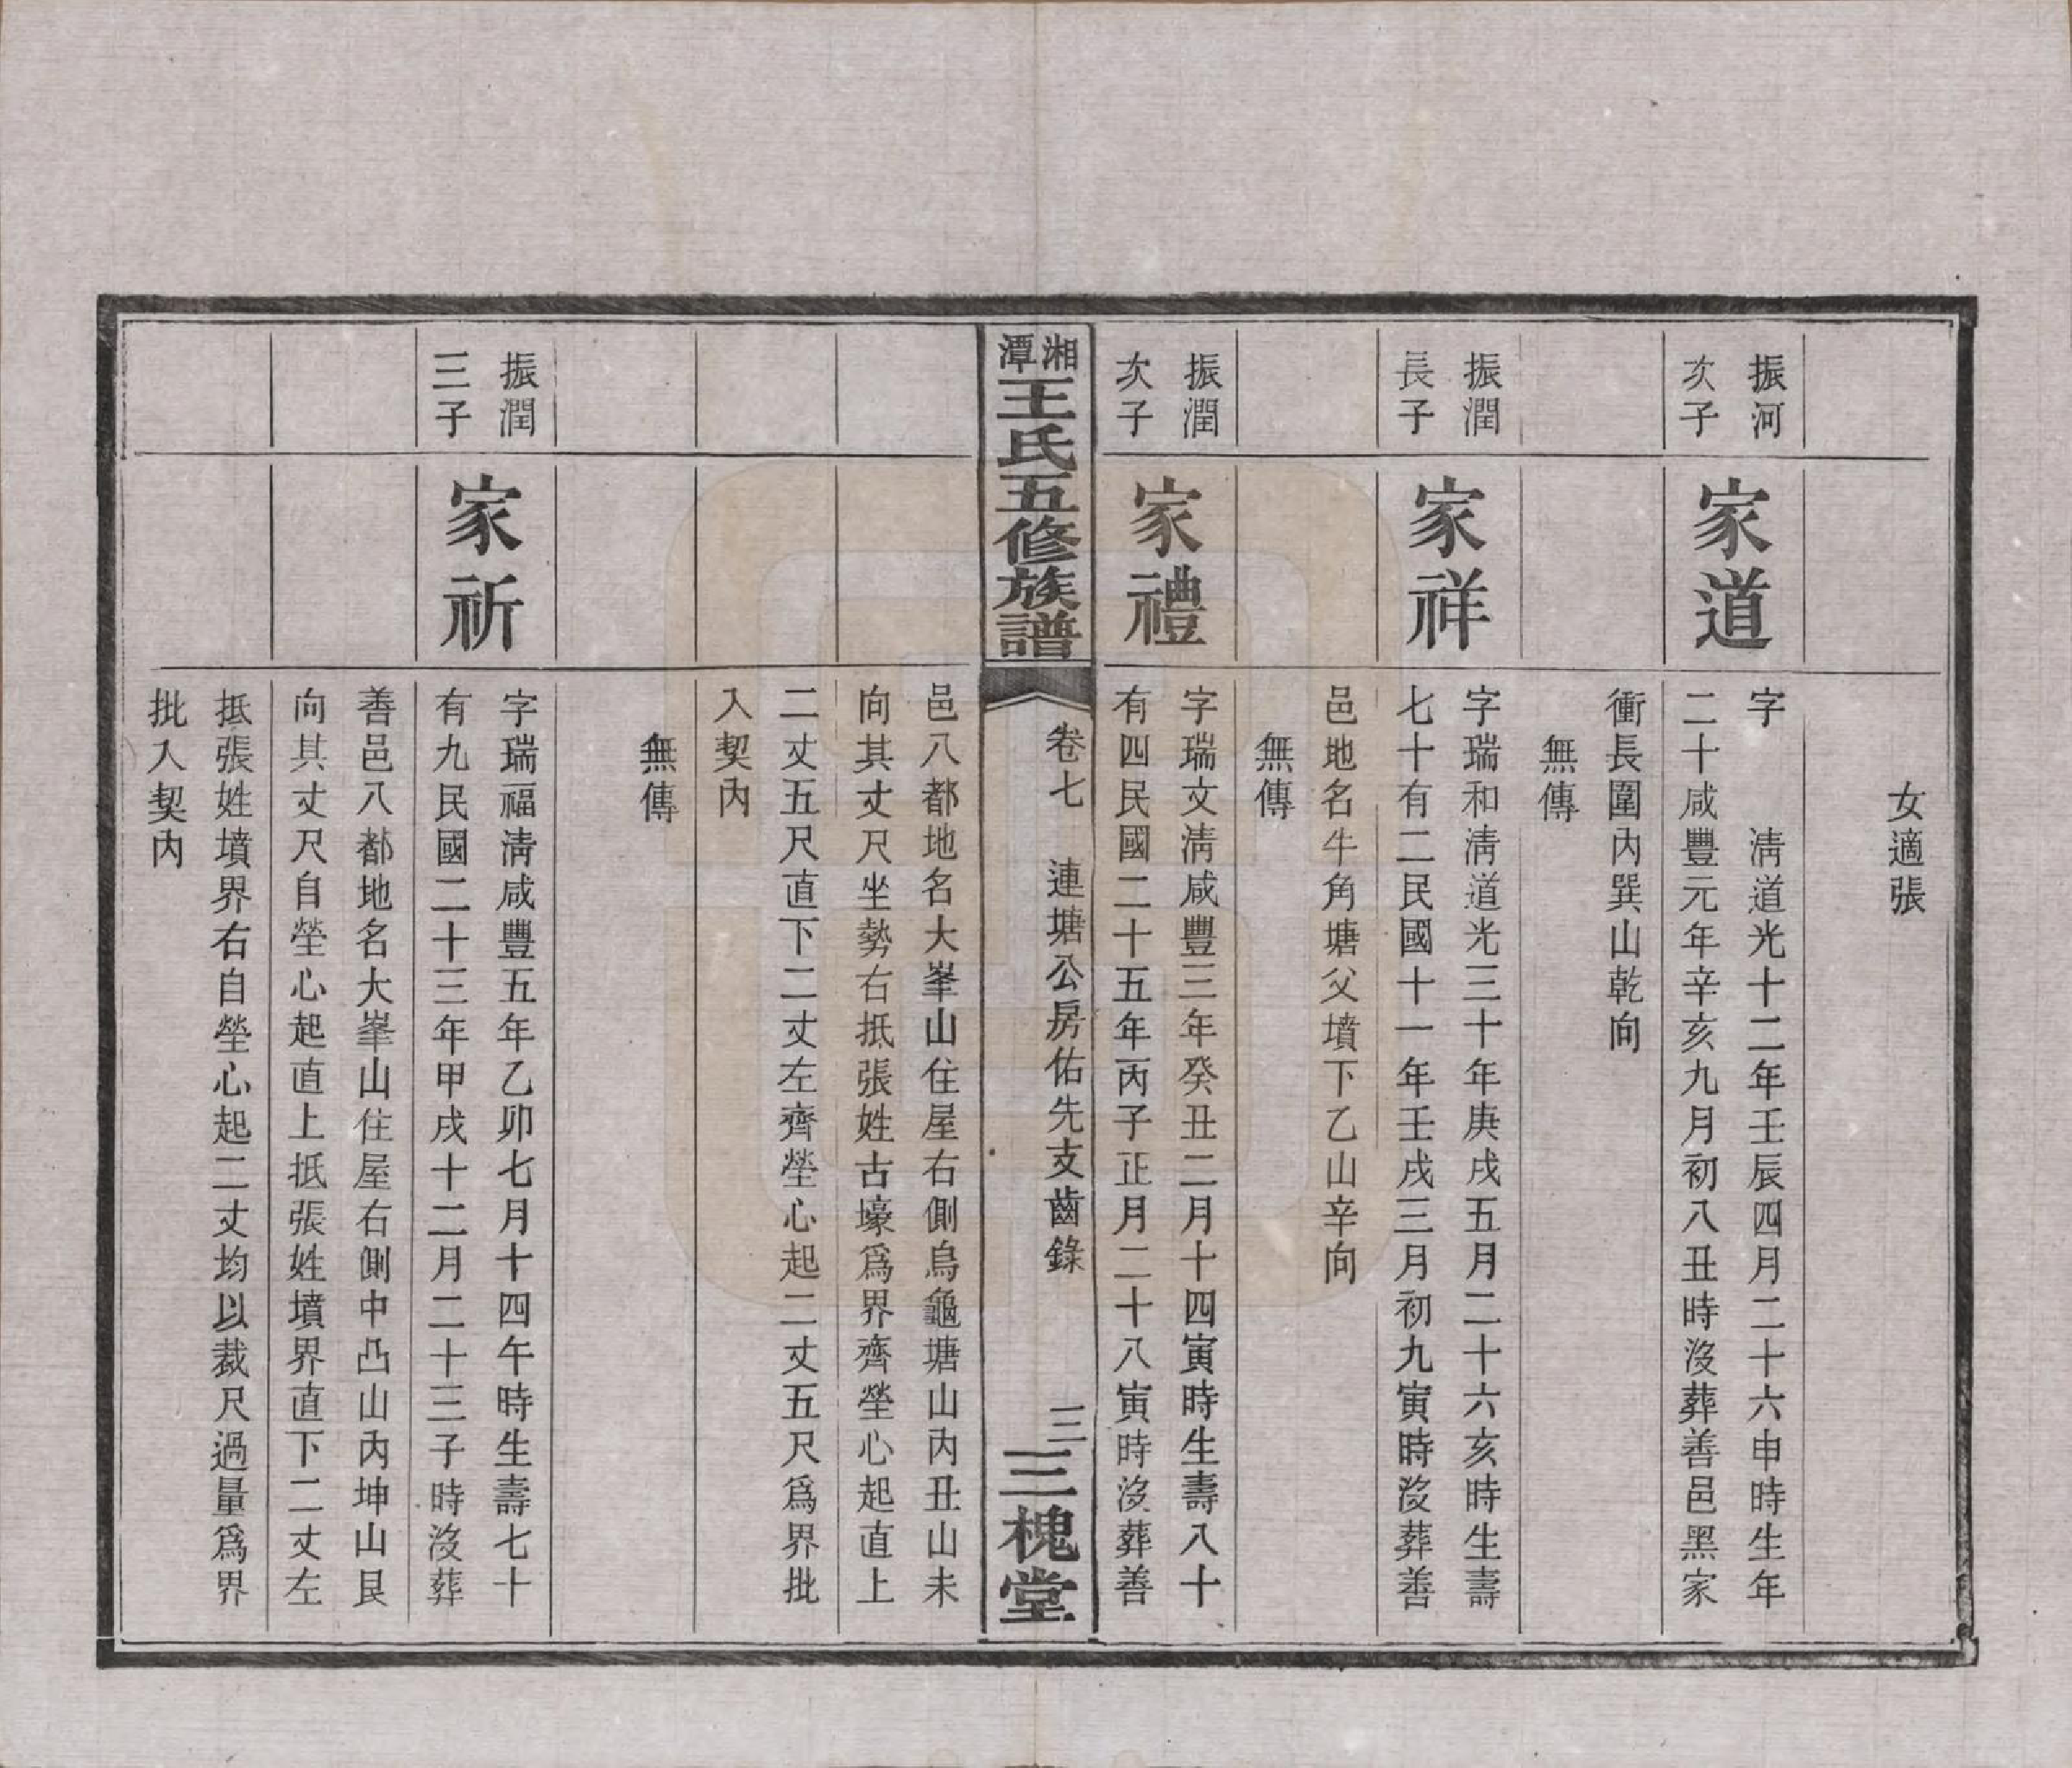 女適張
振河
次子
家道
字 淸道光十二年壬辰四月二十六申時生年
二十咸豐元年辛亥九月初八丑時沒葬善邑黑家
衝長圍內巽山乾向
無傳
振潤
長子
家祥
字瑞和淸道光三十年庚戌五月二十六亥時生壽
七十有二民國十一年壬戌三月初九寅時沒葬善
邑地名牛角塘父墳下乙山辛向
無傳
振潤
次子
家禮
字瑞文淸咸豐三年癸丑二月十四寅時生壽八十
有四民國二十五年丙子正月二十八寅時沒葬善
湘潭王氏五修族譜
卷七 連塘公房佑先支齒錄 三
三槐堂
邑八都地名大峯山住屋右側烏龜塘山內丑山未
向其丈尺坐勢右抵張姓古壕爲界齊塋心起直上
二丈五尺直下二丈左齊塋心起二丈五尺爲界批
入契內
無傳
振潤
三子
家祈
字瑞福淸咸豐五年乙卯七月十四午時生壽七十
有九民國二十三年甲戌十二月二十三子時沒葬
善邑八都地名大峯山住屋右側中凸山內坤山艮
向其丈尺自塋心起直上抵張姓墳界直下二丈左
抵張姓墳界右自塋心起二丈均以裁尺過量爲界
批入契內